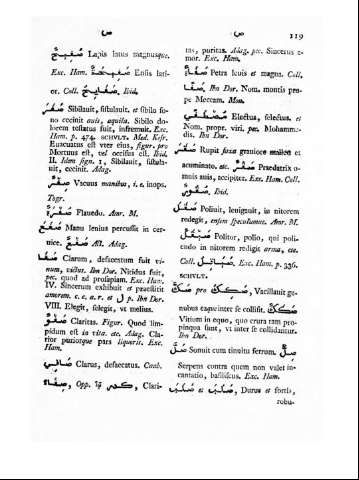 ص
ص
119
صَفِيحٌ Lapis latus magnusque.
Exc. Ham. صَفِيحَةٌ Ensis lati-
or. Coll. صَفِيحٌ. Ibid.
صَفَرَ Sibilauit, fistulauit. et sibilo so-
no cecinit auis, aquila. Sibilo do-
lorem testatus fuit, infremuit. Exc.
Ham. p. 474. SCHVLT. Med. Kefr.
Euacuatus est vter eius, figur. pro
Mortuus est, vel occisus est. Ibid.
II. Idem sign. I, Sibilauit, fistula-
uit, cecinit. Adag.
صِفْرٌ Vacuus manibus, i. e. inops.
Togr.
Flauedo. Amr. M.
صَفَعَ Manu lenius percussit in cer-
uice. Ast. Adag.
صَفَا Clarum, defaecatum fuit vi-
num, vidus. Ibn Dur. Nitidus fuit,
pec. quod ad prosapiam. Exc. Ham.
IV. Sincerum exhibuit et praestitit
amorem. c. c. a. r. et ل p. Ibn Dur.
VIII. Elegit, selegit, vt melius.
صَفْوٌ Claritas. Figur. Quod lim-
pidum est in vita. etc. Adag. Cla-
rior puriorque pars liquoris. Exc.
Ham.
صَافٍ Clarus, defaecatus. Caab.
صَفَاءٌ, Opp. كَدَرٌ, Clari-
tas, puritas. Adag. pec. Sincerus a-
mor. Exc. Ham.
صَفَاةٌ Petra leuis et magna. Coll.
صَفًا, Ibn Dur. Nom. montis pro-
pe Meccam. Mon.
مُصْطَفًى Electus, selectus. et
Nom. propr. viri, pec. Mohamme-
dis. Ibn Dur.
صَقَرَ Rupit saxa grauiore malleo et
acuminato. etc. صَقْرٌ Praedatrix o-
mnis auis, accipiter. Exc. Ham. Coll.
صُقُورٌ, Ibid.
صَقَلَ Poliuit, leuigauit, in nitorem
redegit, ensem speculumue. Amr. M.
صَيْقَلٌ Politor, polio, qui poli-
endo in nitorem redigit arma, etc.
Coll. صَيَاقِلُ. Exc. Ham. p. 336.
SCHVLT.
صَكَّ pro صَكِكَ, Vacillauit ge-
nubus eaque inter se collisit.
Vitium in equo, quo crura tam pro-
pinqua sunt, vt inter se collidantur.
Ibn Dur.
صَلَّ Sonuit cum tinnitu ferrum. صِلٌّ
Serpens contra quem non valet in-
cantatio, basiliscus. Exc. Ham.
صَلُبَ et صَلِبَ, Durus et fortis,
robu-